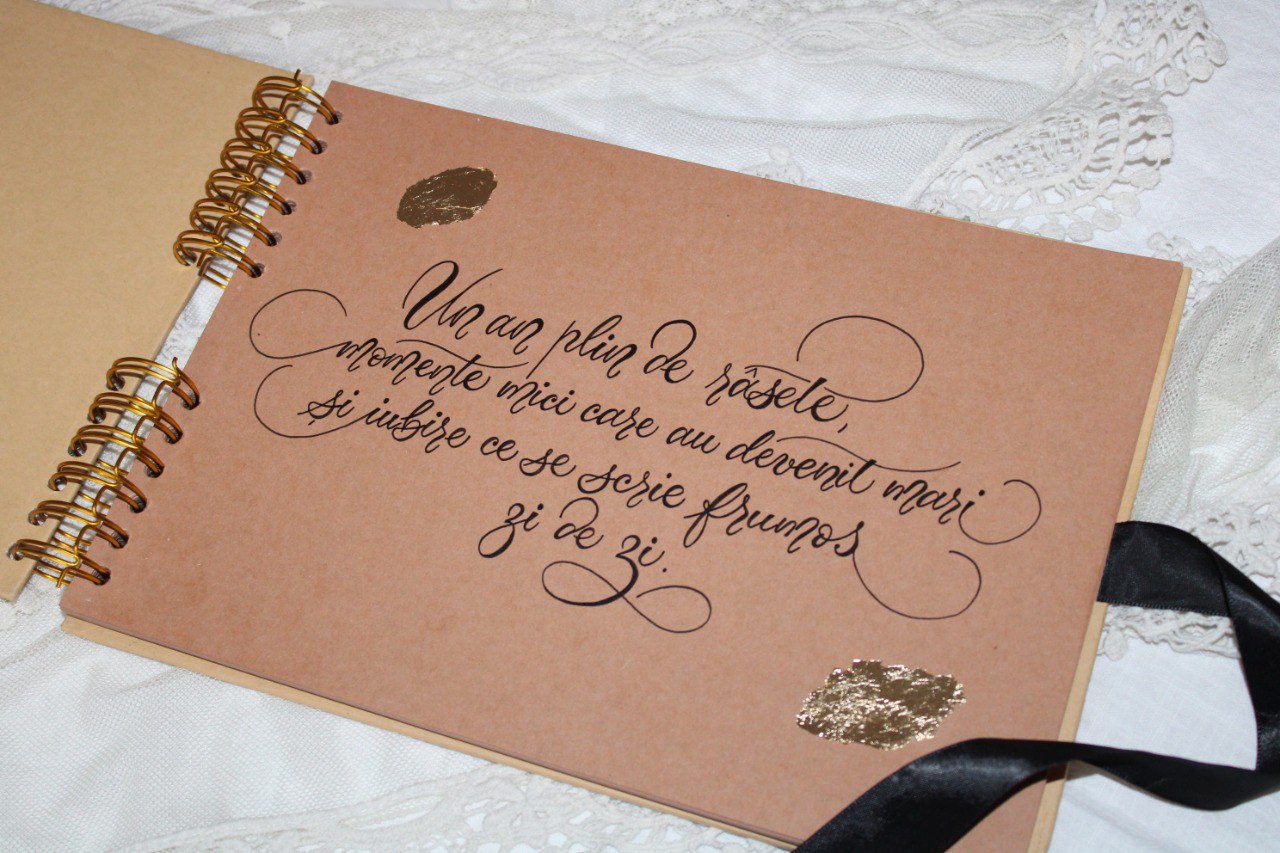 Un an plin de râsete,
momente mici care au devenit mari
și iubire ce se scrie frumos
zi de zi.